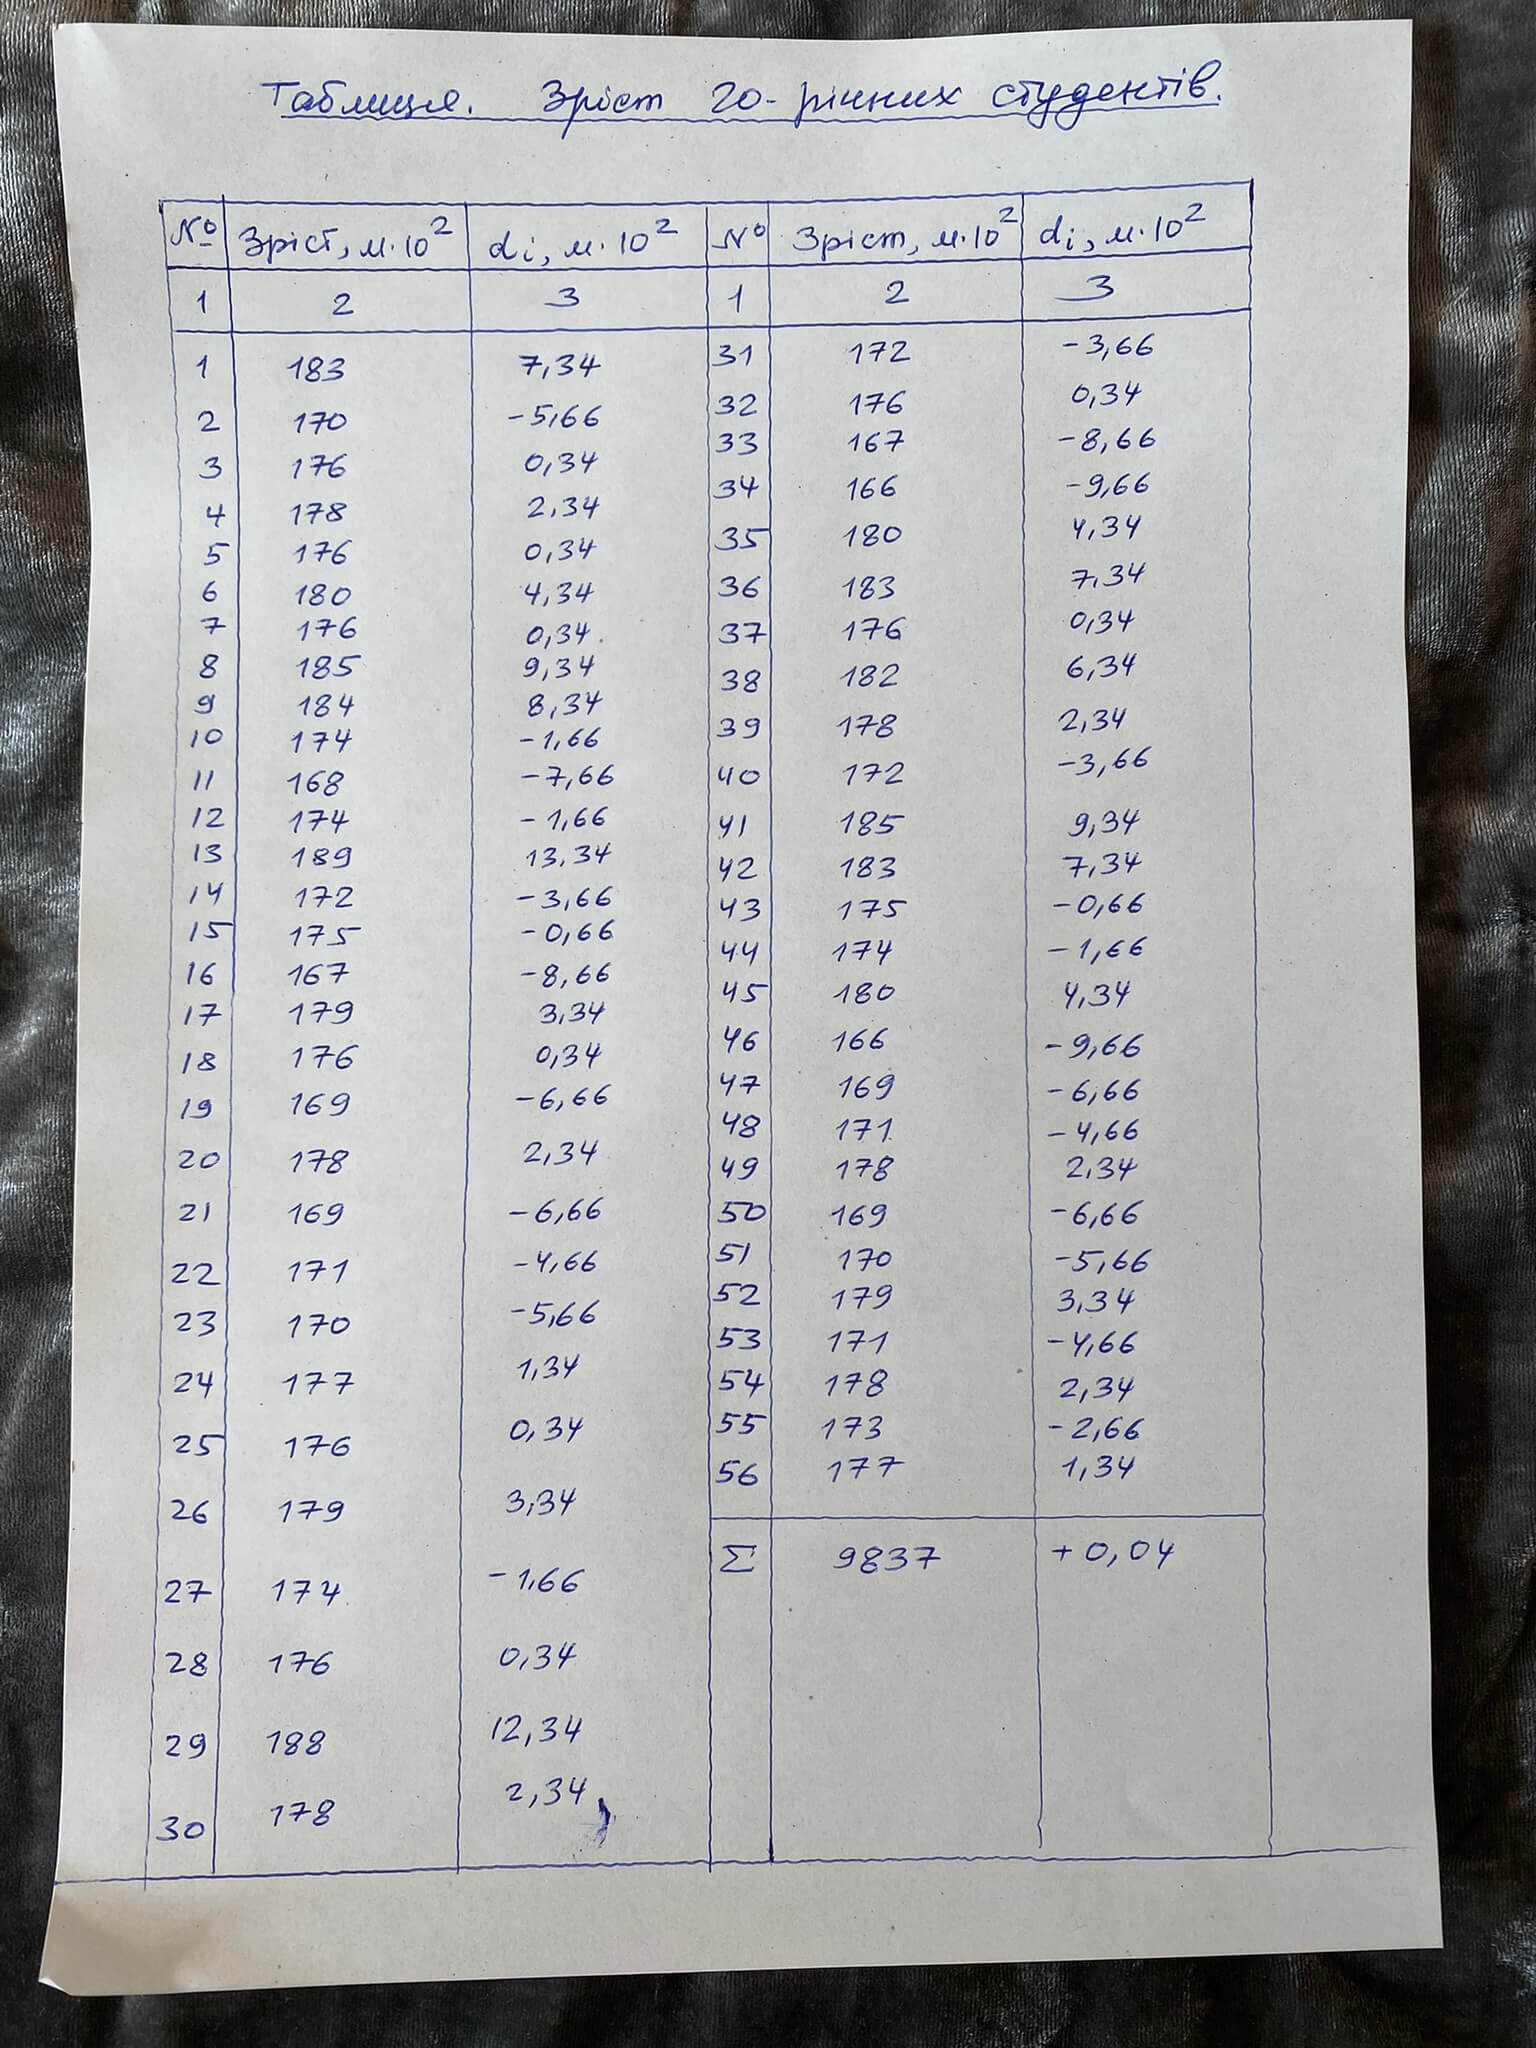 Таблиця. Зріст 20-річних студентів.
№ Зріст, м·10² di, м·10² № Зріст, м·10² di, м·10²
1 2 3 1 2 3
1 183 7,34 31 172 -3,66
2 170 -5,66 32 176 0,34
3 176 0,34 33 167 -8,66
4 178 2,34 34 166 -9,66
5 176 0,34 35 180 4,34
6 180 4,34 36 183 7,34
7 176 0,34 37 176 0,34
8 185 9,34 38 182 6,34
9 184 8,34 39 178 2,34
10 174 -1,66 40 172 -3,66
11 168 -7,66 41 185 9,34
12 174 -1,66 42 183 7,34
13 189 13,34 43 175 -0,66
14 172 -3,66 44 174 -1,66
15 175 -0,66 45 180 4,34
16 167 -8,66 46 166 -9,66
17 179 3,34 47 169 -6,66
18 176 0,34 48 171 -4,66
19 169 -6,66 49 178 2,34
20 178 2,34 50 169 -6,66
21 169 -6,66 51 170 -5,66
22 171 -4,66 52 179 3,34
23 170 -5,66 53 171 -4,66
24 177 1,34 54 178 2,34
25 176 0,34 55 173 -2,66
26 179 3,34 56 177 1,34
27 174 -1,66 Σ 9837 +0,04
28 176 0,34
29 188 12,34
30 178 2,34